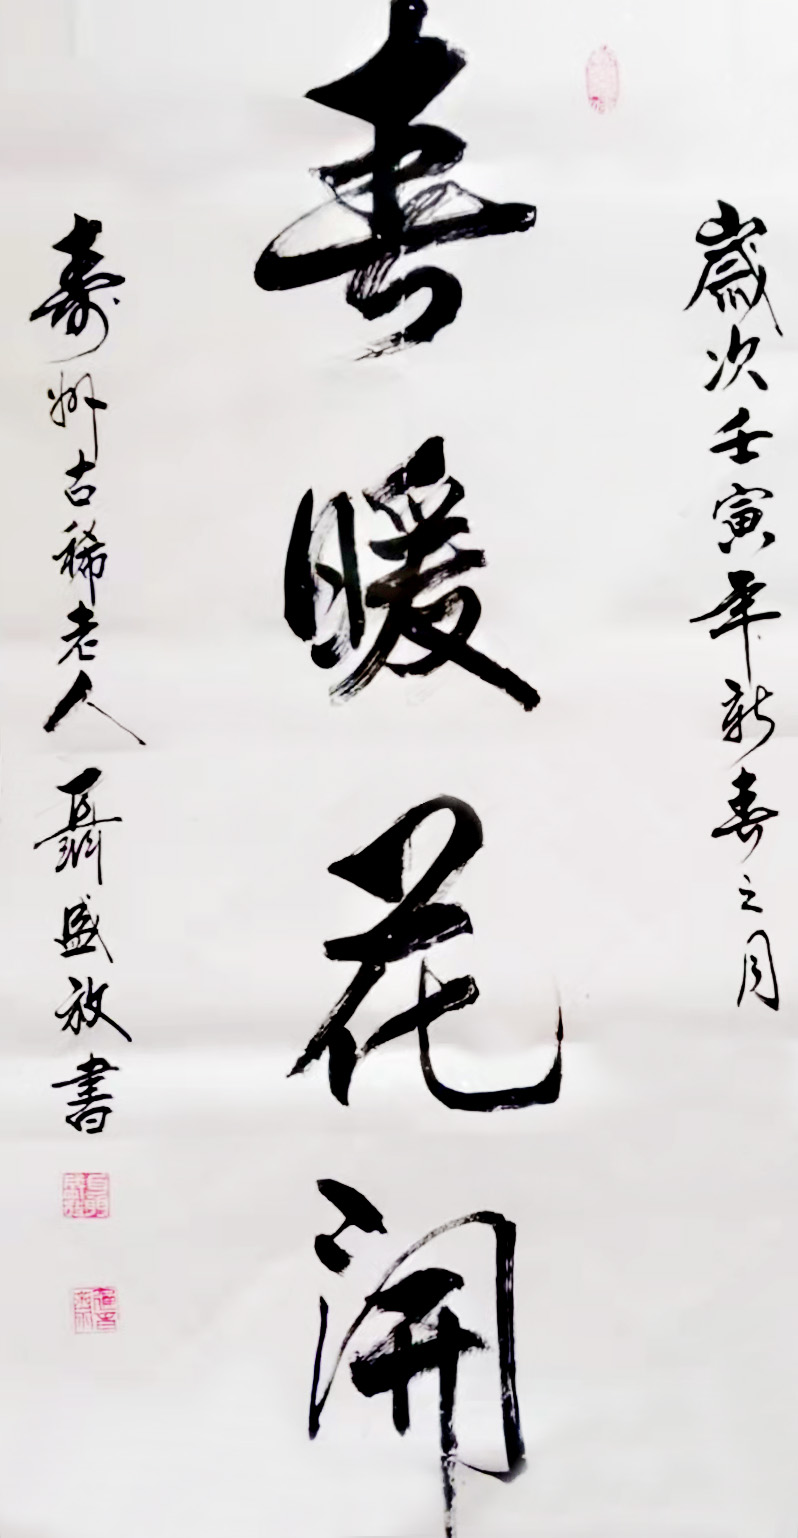 歲次壬寅年新春之月
春暖花開
壽州古稀老人聶盛放書